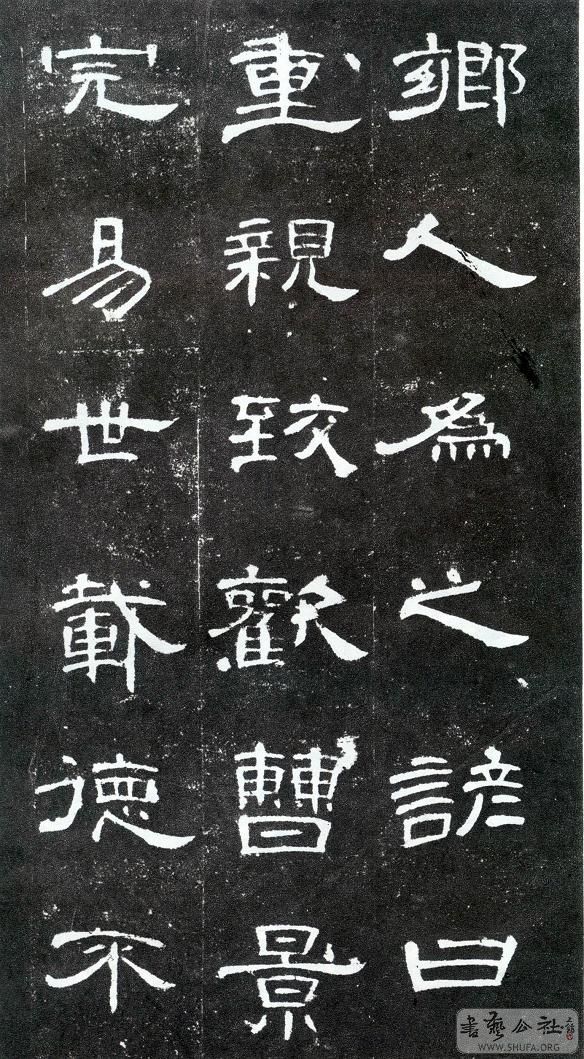 鄉人為之諺曰
重親致歡曹景
完易世載德不
書藝公社
WWW.SHUFA.ORG